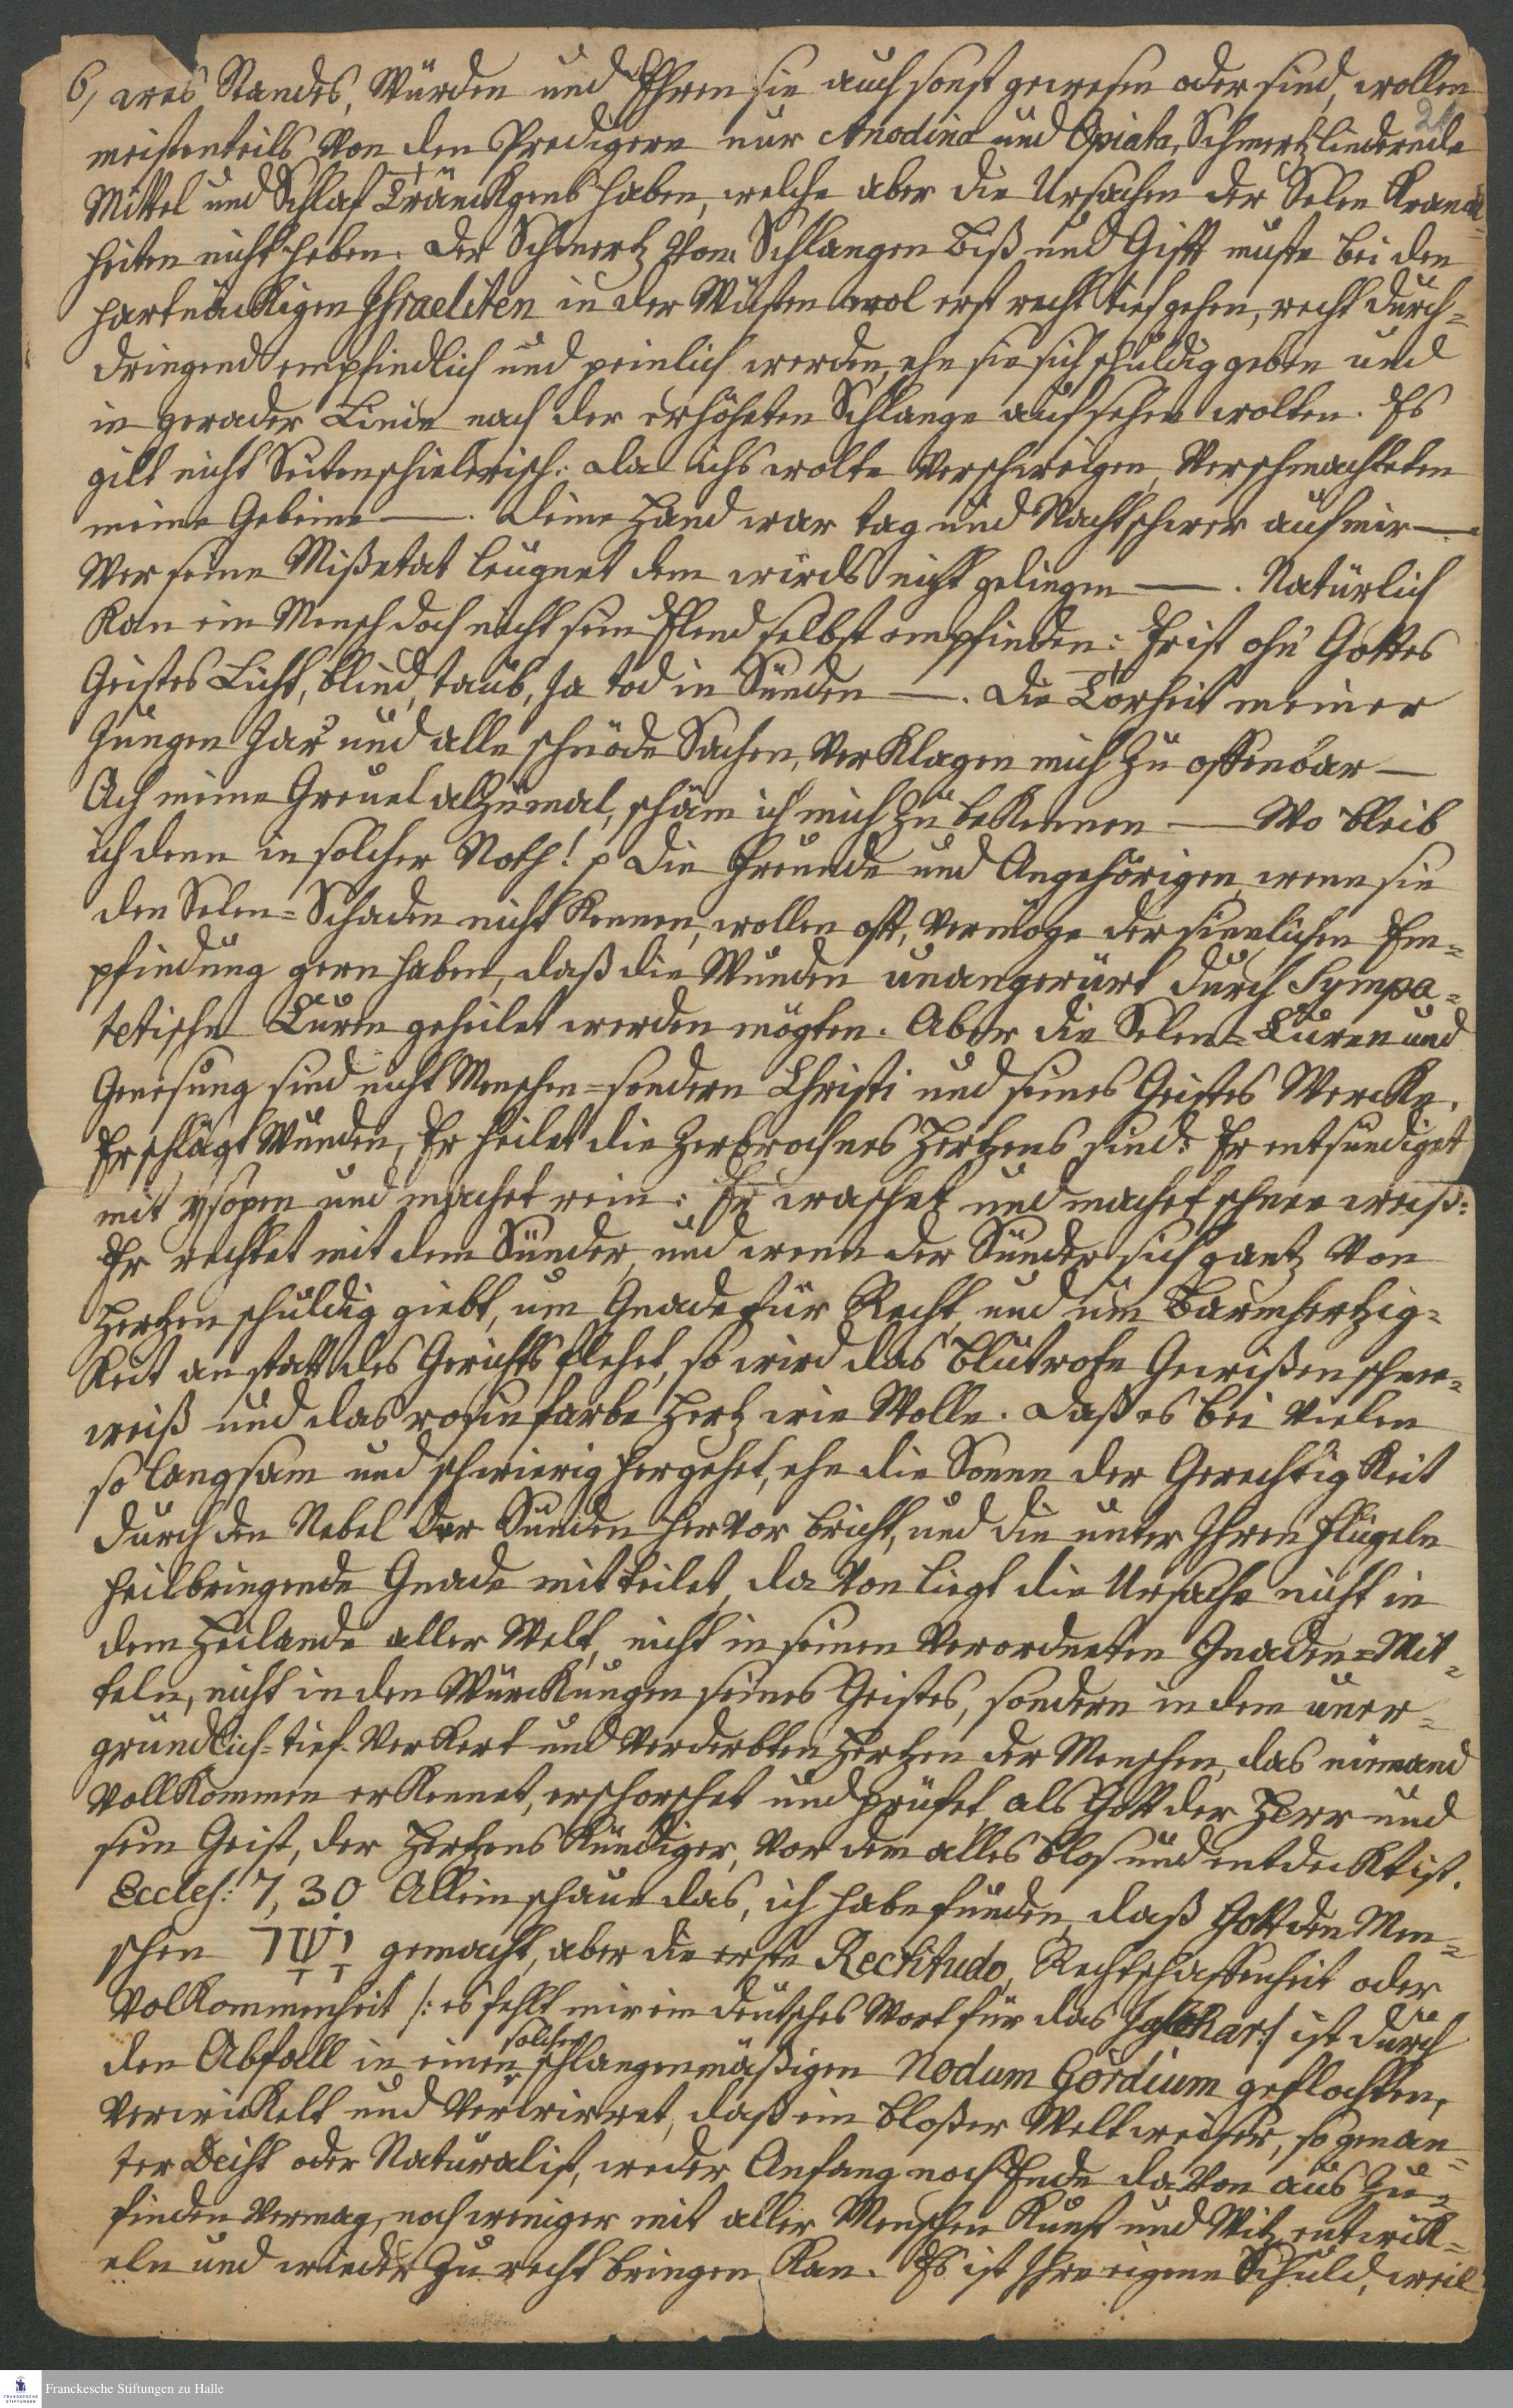 6, was Standes, Würden und Ehren sie auch sonst gewesen oder sind, wollen
24
meistenteils von den Predigern nur Anodina und Opiata, Schmertzlindernde
Mittel und Schlaf Tränckgens haben, welche aber die Ursachen der Selen Kranck=
heiten nicht heben. Der Schmertz vom Schlangen Biß und Gift muste bei den
hartnäckigen Israeliten in der Wüsten wol erst recht tief gehen, recht durch=
dringend empfindlich und peinlich werden, ehe sie sich schuldig geben und
in gerader Linie nach der erhöheten Schlange aufsehen wolten. Es
gilt nicht Seitenschielerisch: da ichs wolte verschweigen, verschmachteten
meine Gebeine —. Deine Hand war tag und Nacht schwer auf mir —.
Wer seine Mißetat leugnet dem wirds nicht gelingen —. Natürlich
Kan ein Mensch doch nicht sein Elend selbst empfinden: Er ist ohn Gottes
Geistes Licht, blind, taub, Ja tod in Sünden —. Die Torheit meiner
Jungen Jar und alle schnöde Sachen, verklagen mich zu offenbar —
Ach meine Greuel allzumal, schäm ich mich zu bekennen — Wo bleib
ich denn in solcher Noth! Die Freunde und Angehörigen, wenn sie
den Selen=Schaden nicht kennen, wollen oft, vermöge der sinnlichen Em=
pfindung gern haben, daß die Wunden unangerürt durch Sympa=
tetische Curen geheilet werden mögten. Aber die Selen=Curen und
Genesung sind nicht Menschen=sondern Christi und seines Geistes Wercke.
Er schlägt Wunden, Er heilet die zerbrochnes Hertzens sind: Er entsündiget
mit ysopen und machet rein: Er waschet und machet schnee weiß:
Er rechtet mit dem Sünder, und wenn der Sünder sich gantz von
Hertzen schuldig giebt, um Gnade für Recht, und um Barmhertzig=
Keit anstatt des Gerichts flehet, so wird das blutrote Gewißen schnee=
weiß und das rosinfarbe Hertz wie Wolle. Daß es bei vielen
so langsam und schwierig hergehet, ehe die Sonne der Gerechtigkeit
durch den Nebel der Sünden hervor bricht, und die unter Ihren Flügeln
heilbringende Gnade mitteilet, davon liegt die Ursache nicht in
dem Heilande aller Welt, nicht in seinen verordneten Gnaden=Mit=
teln, nicht in den Würckungen seines Geistes, sondern in dem uner=
gründlich=tief verkert und verderbten Hertzen der Menschen, das niemand
vollkommen erkennet, erforschet und prüfet als Gott der Herr und
sein Geist, der Hertzens Kündiger, vor dem alles blos und entdeckt ist.
Eccles: 7, 30 Allein schaue das, ich habe funden, daß Gott den Men=
schen יָשָׁר gemacht, aber die erste Rectitudo, Rechtschaffenheit oder
Volkommenheit /: es fehlt mir ein deutsches Wort für das Jaschar :/ ist durch
den Abfall in einen solchen schlangenmäßigen Nodum Gordium geflochten,
verwickelt und verwirret, daß ein bloßer Weltweiser, so genan=
ter Deist oder Naturalist, weder Anfang noch Ende davon aus zu=
finden vermag, noch weniger mit aller Menschen Kunst und Witz entwick=
eln und wieder zu recht bringen kan. Es ist Ihre eigene Schuld, weil
Franckesche Stiftungen zu Halle